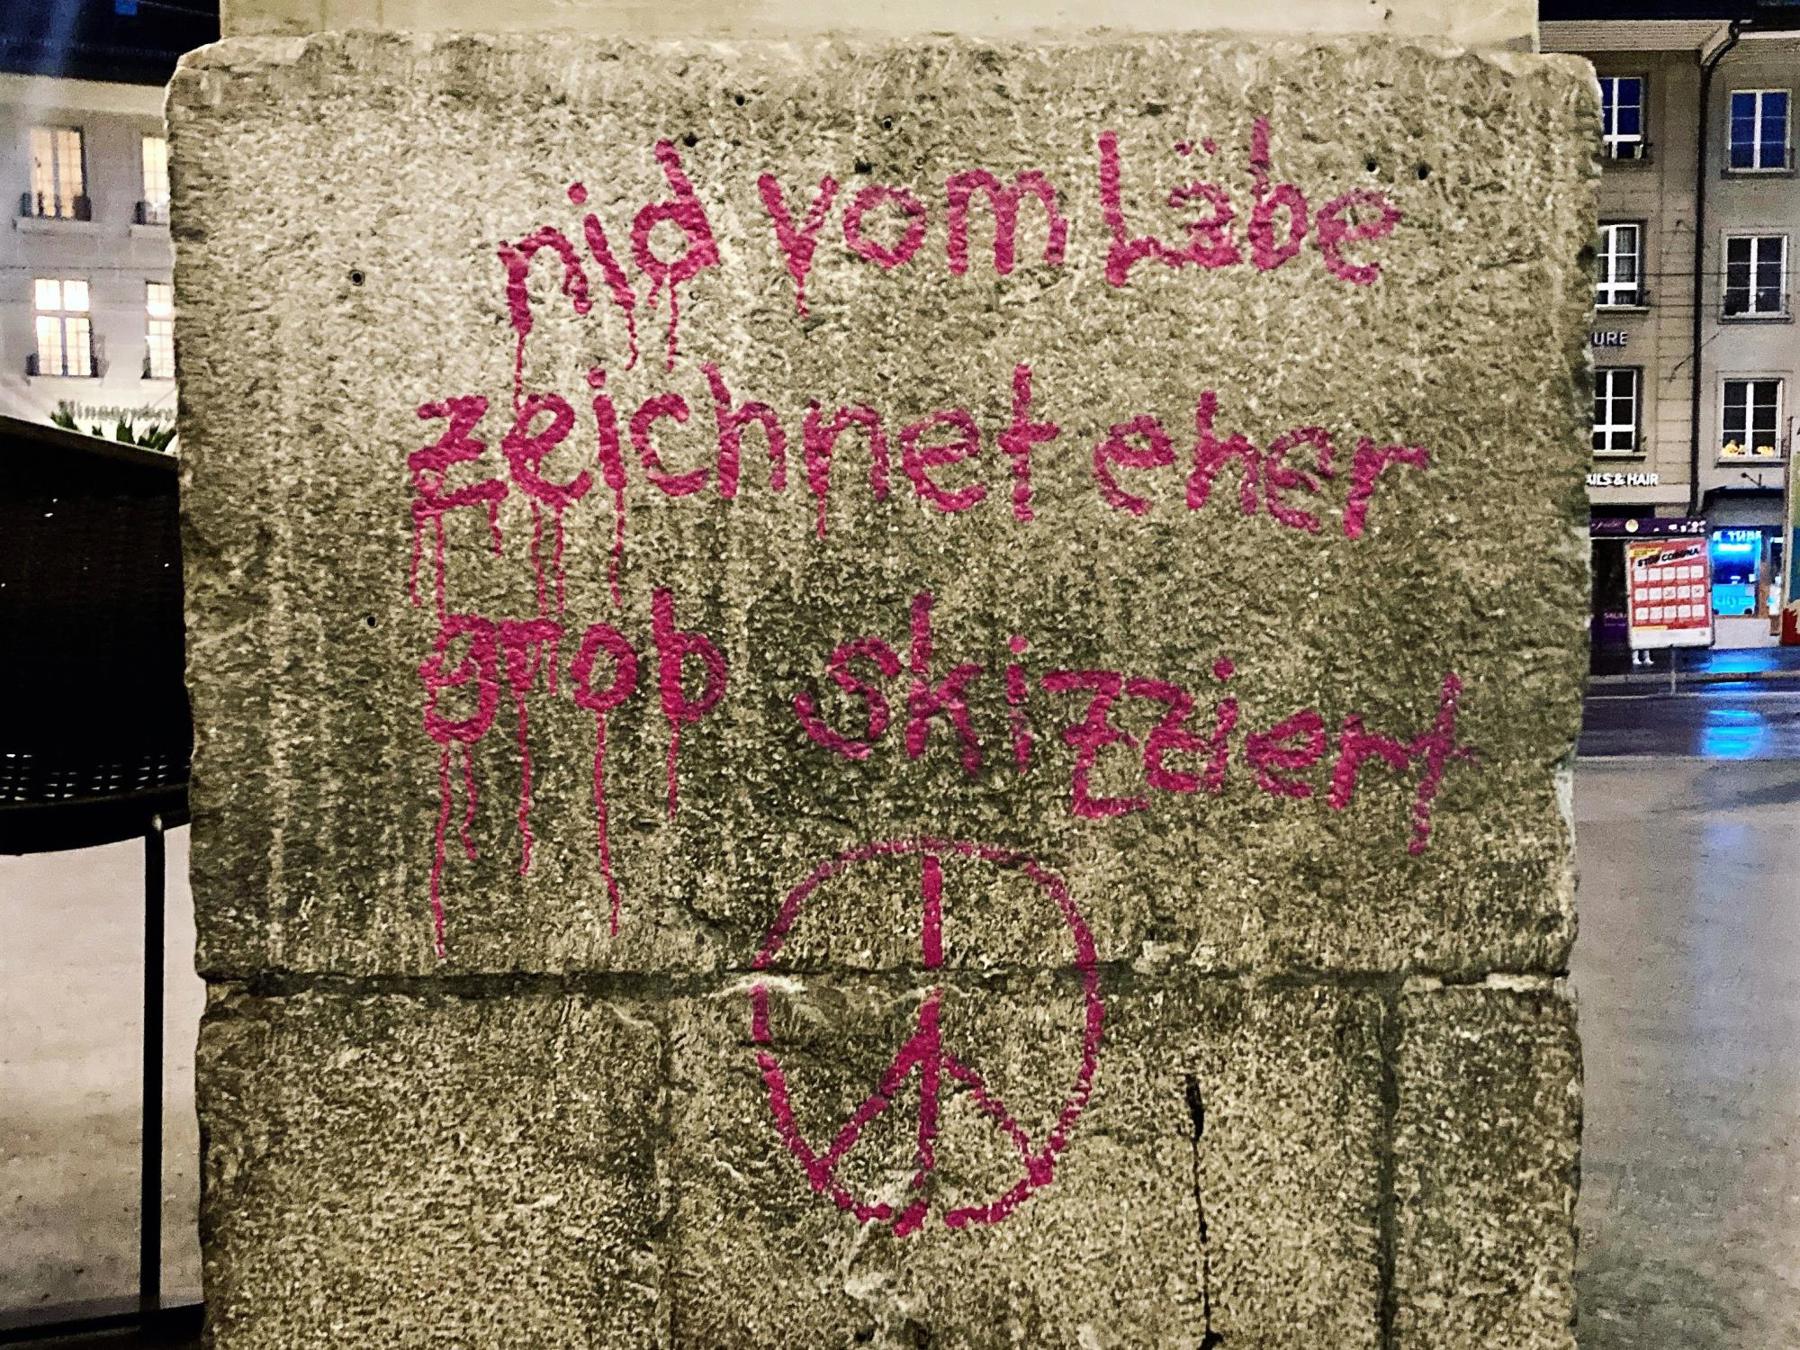 nid vom Läbe
zeichnet eher
grob skizziert
URE
AILS & HAIR
STOP CORONA